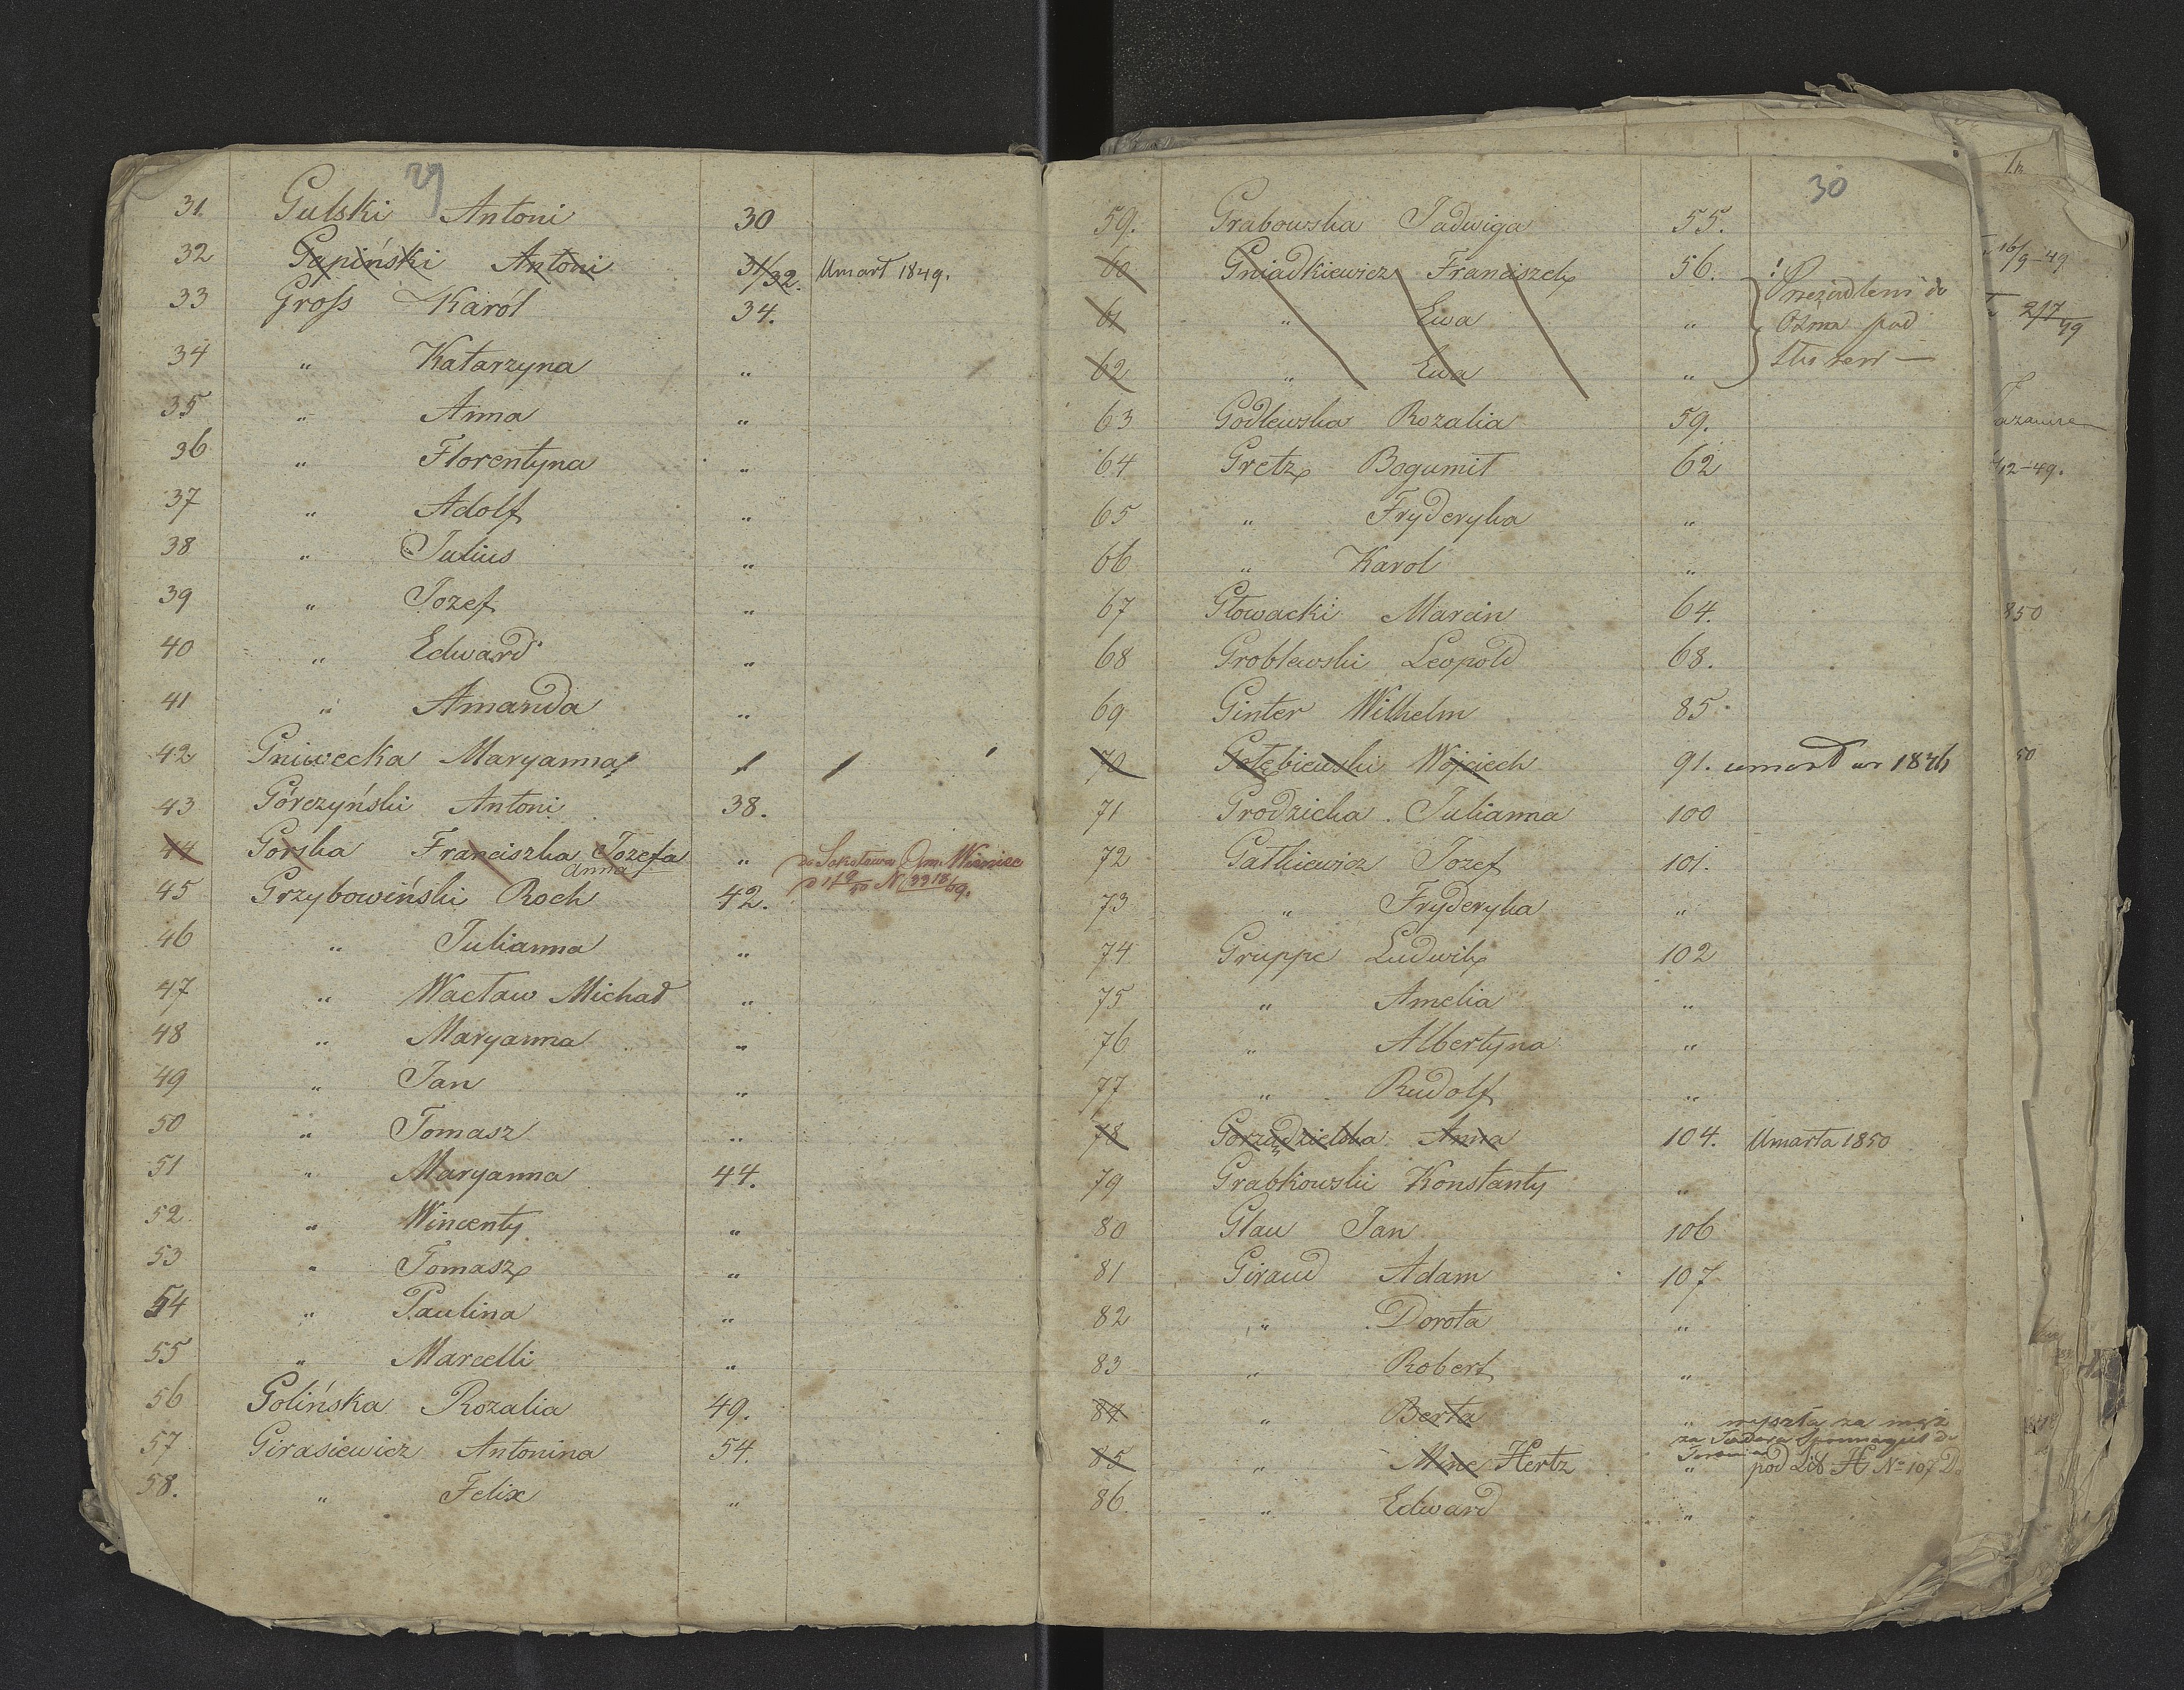 29
31. Gulski Antoni 30
32 Gapiński Antoni 31/32. Umarł 1849.
33 Gross Karól 34.
34 " Katarzyna "
35 " Anna "
36 " Florentyna "
37 " Adolf "
38 " Julius "
39 " Jozef "
40 " Edward "
41 " Amanda "
42 Gniwecka Maryanna
43 Górczyński Antoni 38.
44 Gorska Franciszka Jozefa "
Anna
45 Grzybowiński Roch 42.
46 " Julianna "
47 " Wacław Michał "
48 " Maryanna "
49 " Jan "
50 " Tomasz "
51 " Maryanna 44.
52 " Wincenty "
53 " Tomasz "
54 " Paulina "
55 " Marcelli "
56 Golińska Rozalia 49.
57 Girasiewicz Antonina 54.
58. " Felix "
30
59. Grabowska Jadwiga 55.
60 Gniadkiewicz Franciszek 56.
61 " Ewa "
62 " Ewa "
63 Godlewska Rozalia 59.
64 Gretz Bogumił 62
65 " Fryderyka "
66 " Karol "
67 Głowacki Marcin 64.
68 Groblewski Leopold 68.
69 Ginter Wilhelm 85.
70 Gołębiewski Wojciech 91. umarł w 1846
71 Grodzicka Julianna 100
72 Gatkiewicz Jozef 101.
73 " Fryderyka "
74 Gruppe Ludwik 102
75 " Amelia "
76 " Albertyna "
77 " Rudolf "
78 Gorządzielska Anna 104. Umarła 1850
79 Grabkowski Konstanty "
80 Glau Jan 106
81 Giraud Adam 107
82 " Dorota "
83 " Robert "
84 " Berta " wyszła za mąż
85 " Mine Hertz " pod Lit H No 107 D.
86. " Edward "